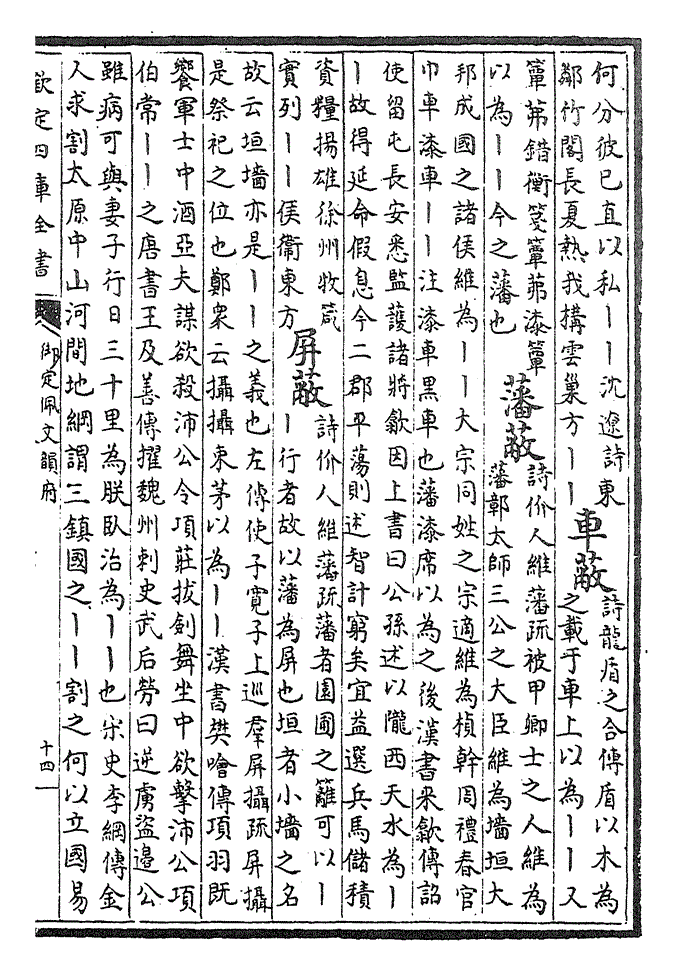 何分彼已直以私丨丨沈遼詩東
鄰竹閣長夏熱我構雲巢方丨丨
車蔽
詩龍盾之合傳盾以木為
之載于車上以為丨丨又
簟茀錯衡箋簟茀漆簟
以為丨丨今之藩也
藩蔽
詩价人維藩疏被甲卿士之人維為
藩鄣太師三公之大臣維為墻垣大
邦成國之諸侯維為丨丨大宗同姓之宗適維為楨幹周禮春官
巾車漆車丨丨注漆車黑車也藩漆席以為之後漢書来歙傳詔
使留屯長安悉監護諸將歙因上書曰公孫述以隴西天水為丨
丨故得延命假息今二郡平蕩則述智計窮矣宜益選兵馬儲積
資糧揚雄徐州牧箴
實列丨丨侯衞東方
屏蔽
詩价人維藩疏藩者園圃之籬可以丨
丨行者故以藩為屏也垣者小墻之名
故云垣墻亦是丨丨之義也左傳使子寛子上巡羣屏攝疏屏攝
是祭祀之位也鄭衆云攝攝束茅以為丨丨漢書樊噲傳項羽既
饗軍士中酒亞夫謀欲殺沛公令項莊拔劍舞坐中欲擊沛公項
伯常丨丨之唐書王及善傳擢魏州刺史武后勞曰逆虜盜邉公
雖病可與妻子行日三十里為朕卧治為丨丨也宋史李綱傳金
人求割太原中山河間地綱謂三鎮國之丨丨割之何以立國易
欽定四庫全書
御定佩文韻府
十四